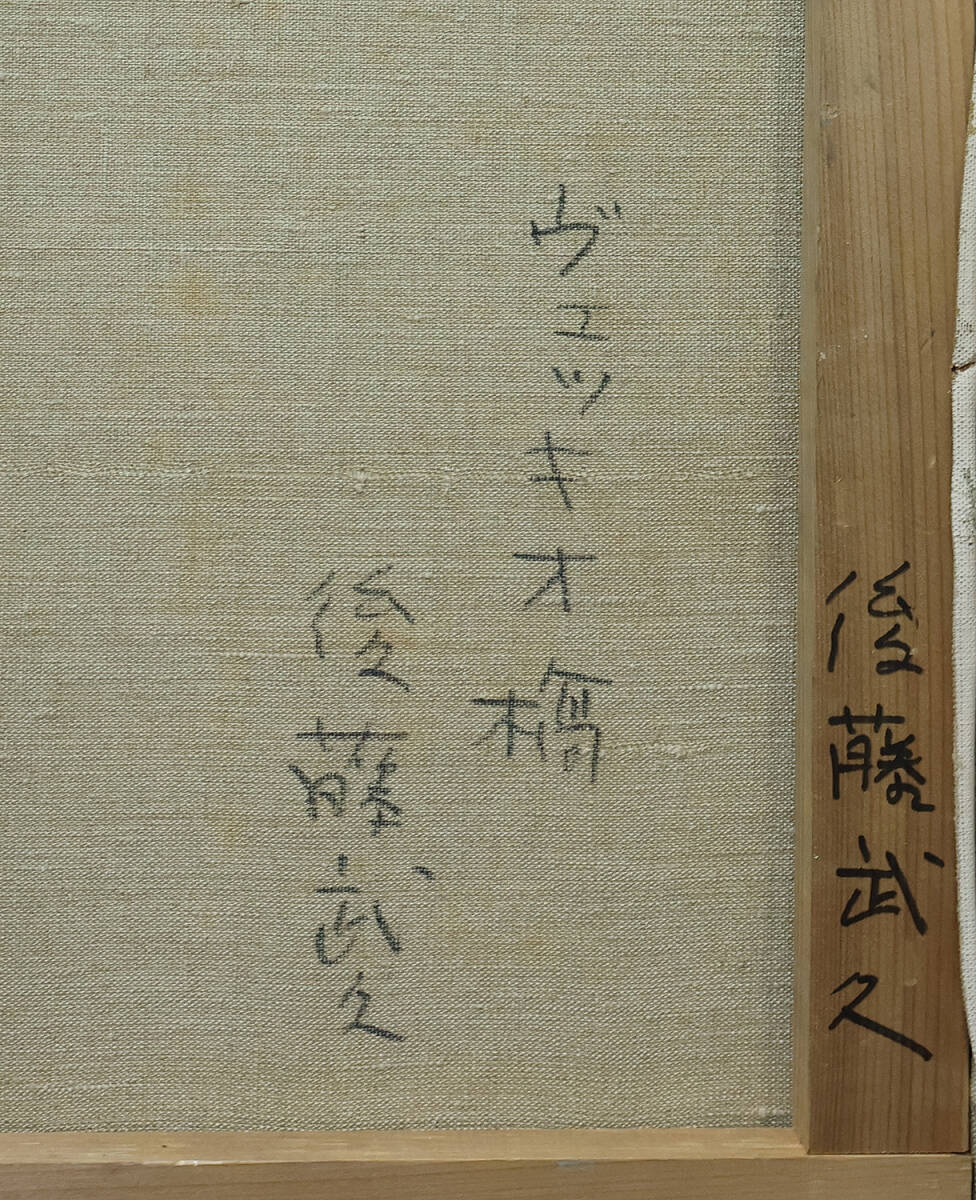 後藤武久
ヴェッキオ橋
後藤武久